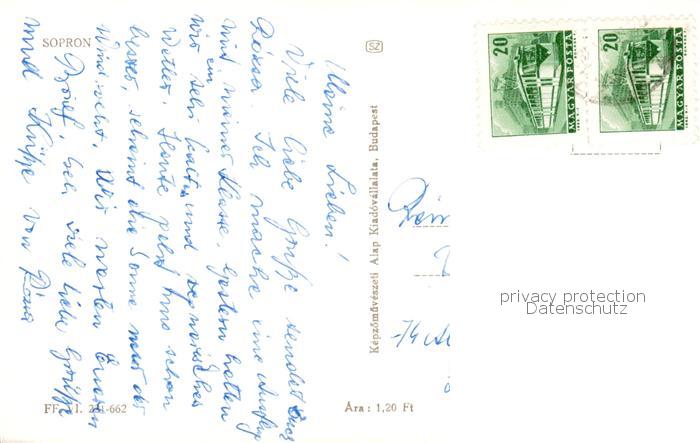 SOPRON
Meine Lieben!
Viele liebe Grüße sendet Euch
Rózsa. Ich mache eine Ausflug
mit meiner Klasse. Gestern hatten
wir ein sehr kaltes und regnerisches
Wetter. Heute geht uns schon
besser, scheint die Sonne nur der
Wind weht. Wir warten Euren
Brief, bei viele liebe Grüße
und Küsse von Rózsa
FF
-662
SZ
Képzőművészeti Alap Kiadóvállalata, Budapest
Ára : 1,20 Ft
20
MAGYAR POSTA
20
MAGYAR POSTA
privacy protection
Datenschutz